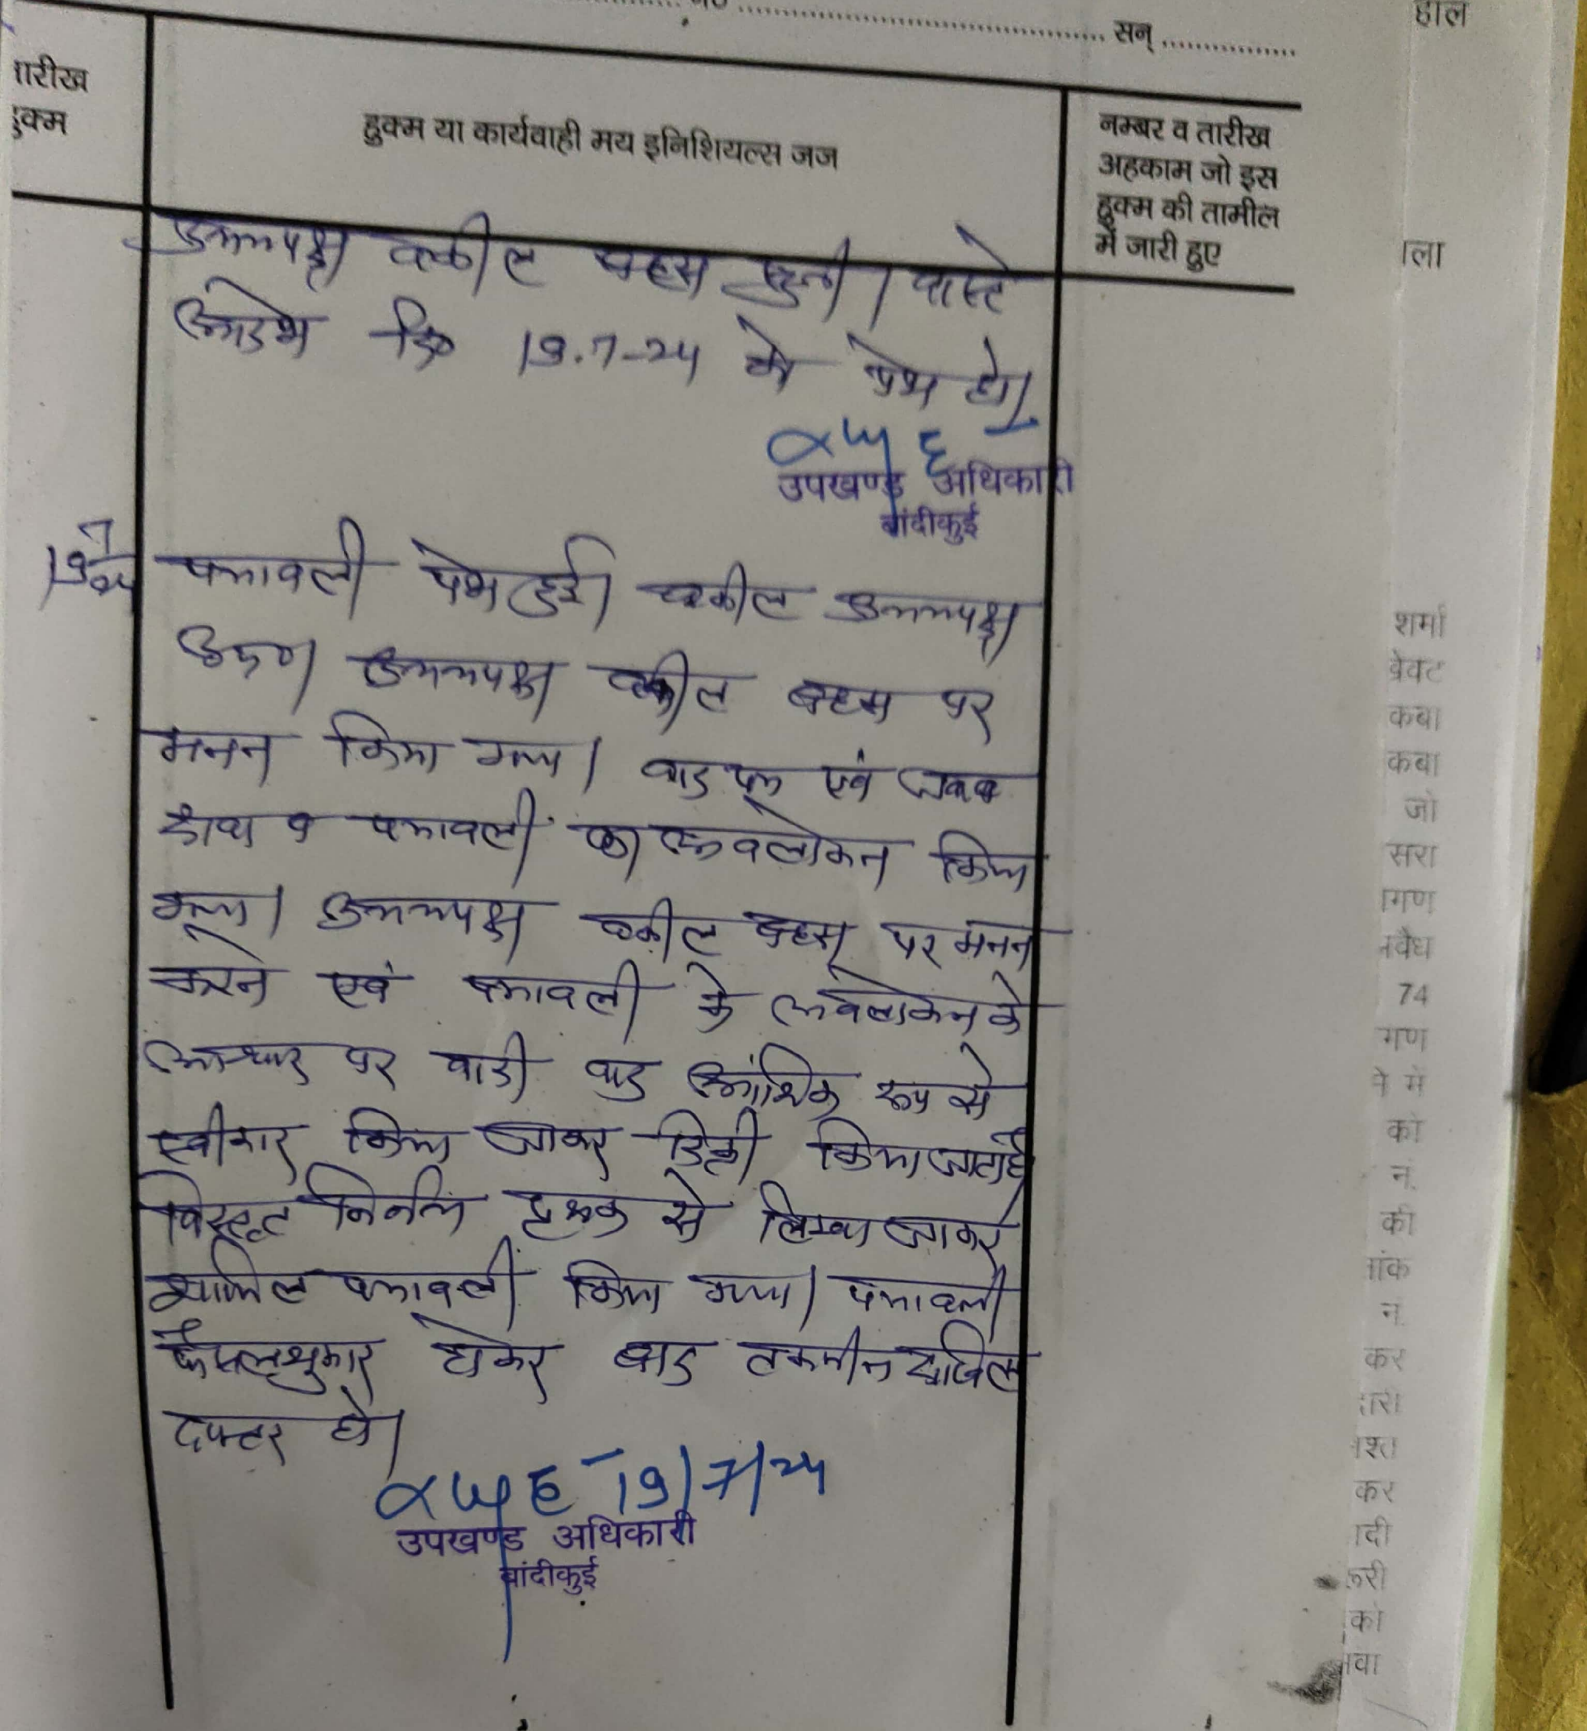 सन्
हाल
तारीख
हुक्म
हुक्म या कार्यवाही मय इनिशियल्स जज
नम्बर व तारीख
अहकाम जो इस
हुक्म की तामील
में जारी हुए
उभयपक्ष वकील बहस सुनी। वास्ते
आदेश दि० 19.7-24 को पेश हो।
उपखण्ड अधिकारी
बांदीकुई
19/7/24
पत्रावली पेश हुई। वकील उभयपक्ष
उप०। उभयपक्ष वकील बहस पर
मनन किया गया। वाद पत्र एवं जवाब
व पत्रावली का अवलोकन किया
गया। उभयपक्ष वकील बहस पर मनन
करने एवं पत्रावली के अवलोकन के
आधार पर वादी वाद आंशिक रूप से
स्वीकार किया जाकर डिक्री किया जाता है
विस्तृत निर्णय पृथक से लिखा जाकर
शामिल पत्रावली किया गया। पत्रावली
फैसलशुमार होकर बाद तकमील दाखिल
दफ्तर हो।
19/7/24
उपखण्ड अधिकारी
बांदीकुई
ला
शर्मा
बेवट
कबा
कबा
जो
सरा
गण
वैध
74
गण
में
को
नं.
की
नांक
नं.
कर
कर
को